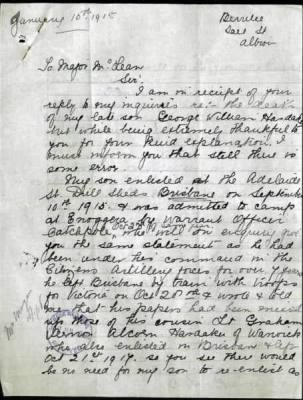 January 10th 1918
Berrilee
Sact St
Albion
To Major McLean
Sir,
I am in receipt of your
reply to my inquiries re:- the death
of my late son George William Hardaker
but while being extremely thankful to
you for your kind explanation. I
must inform you that still there is
some error.
My son enlisted at the Adelaide
St Drill Sheds Brisbane on September
10th 1915 & was admitted to camp
at Enoggera by Warrant Officer
Catchpole, who will on enquiry give
you the same statement as he had
been under his command in the
Citizens Artillery forces for over 7 years
he left Brisbane by train with troops
for Victoria on Oct 28th & wrote & told
me that his papers had been mixed
up those of his cousin Lt Graham
Alcorn Hardaker of Warwick
who also enlisted in Brisbane &
Oct 21st 1917. so you see there would
be no need for my son to re-enlist as